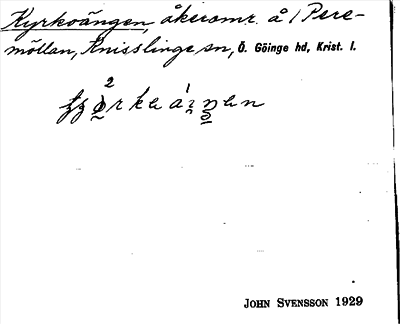 Kyrkoängen, åkeromr. å 1 Pere-
möllan, Knisslinge sn, Ö. Göinge hd, Krist. l.
JOHN SVENSSON 1929